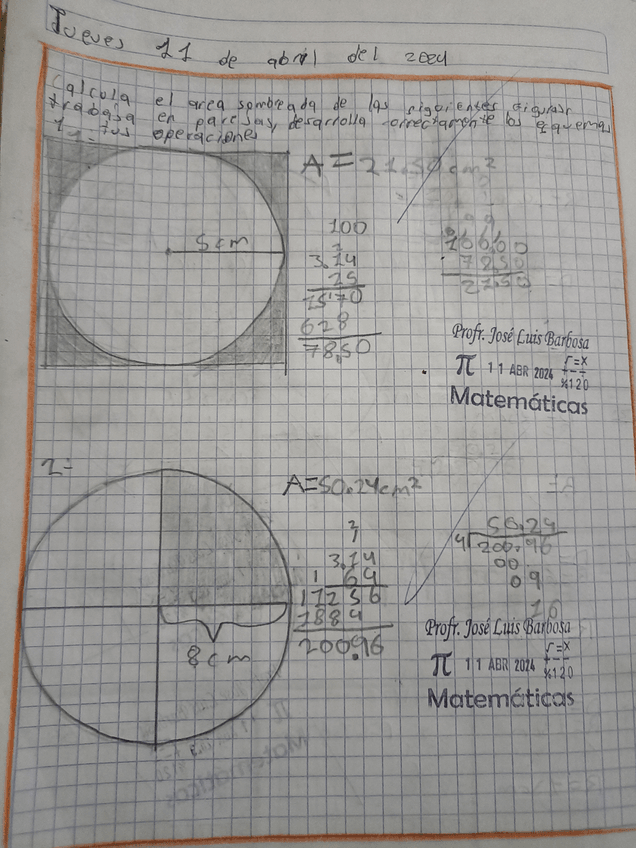 Jueves 11 de abril del 2024
Calcula el area sombreada de las siguientes figuras
trabaja en parejas, desarrolla correctamente los esquemas
y tus operaciones
1-
A = 21.50 cm²
5cm
100
3.14
25
1570
628
78.50
100.00
78.50
21.50
Profr. José Luis Barbosa
π 11 ABR 2024
Matemáticas
2-
A=50.24cm²
8cm
3.14
64
1256
1884
200.96
50.24
4 200.96
00
09
16
Profr. José Luis Barbosa
π 11 ABR 2024
Matemáticas